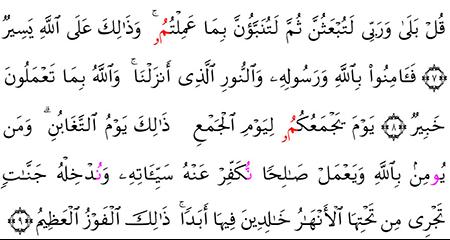 قُلْ بَلَىٰ وَرَبِّى لَتُبْعَثُنَّ ثُمَّ لَتُنَبَّؤُنَّ بِمَا عَمِلْتُمُۥ ۚ وَذَٰلِكَ عَلَى اللَّهِ يَسِيرٌ
﴿٧﴾ فَـَٔامِنُواْ بِاللَّهِ وَرَسُولِهِۦ وَالنُّورِ الَّذِى أَنزَلْنَا ۚ وَاللَّهُ بِمَا تَعْمَلُونَ
خَبِيرٌ ﴿٨﴾ يَوْمَ يَجْمَعُكُمُۥ لِيَوْمِ الْجَمْعِ ذَٰلِكَ يَوْمُ التَّغَابُنِ ۗ وَمَن
يُومِنۢ بِاللَّهِ وَيَعْمَلْ صَـٰلِحًا نُّكَفِّرْ عَنْهُ سَيِّـَٔاتِهِۦ وَنُدْخِلْهُ جَنَّـٰتٍ
تَجْرِى مِن تَحْتِهَا الْأَنْهَـٰرُ خَـٰلِدِينَ فِيهَا أَبَدًا ۚ ذَٰلِكَ الْفَوْزُ الْعَظِيمُ ﴿٩﴾